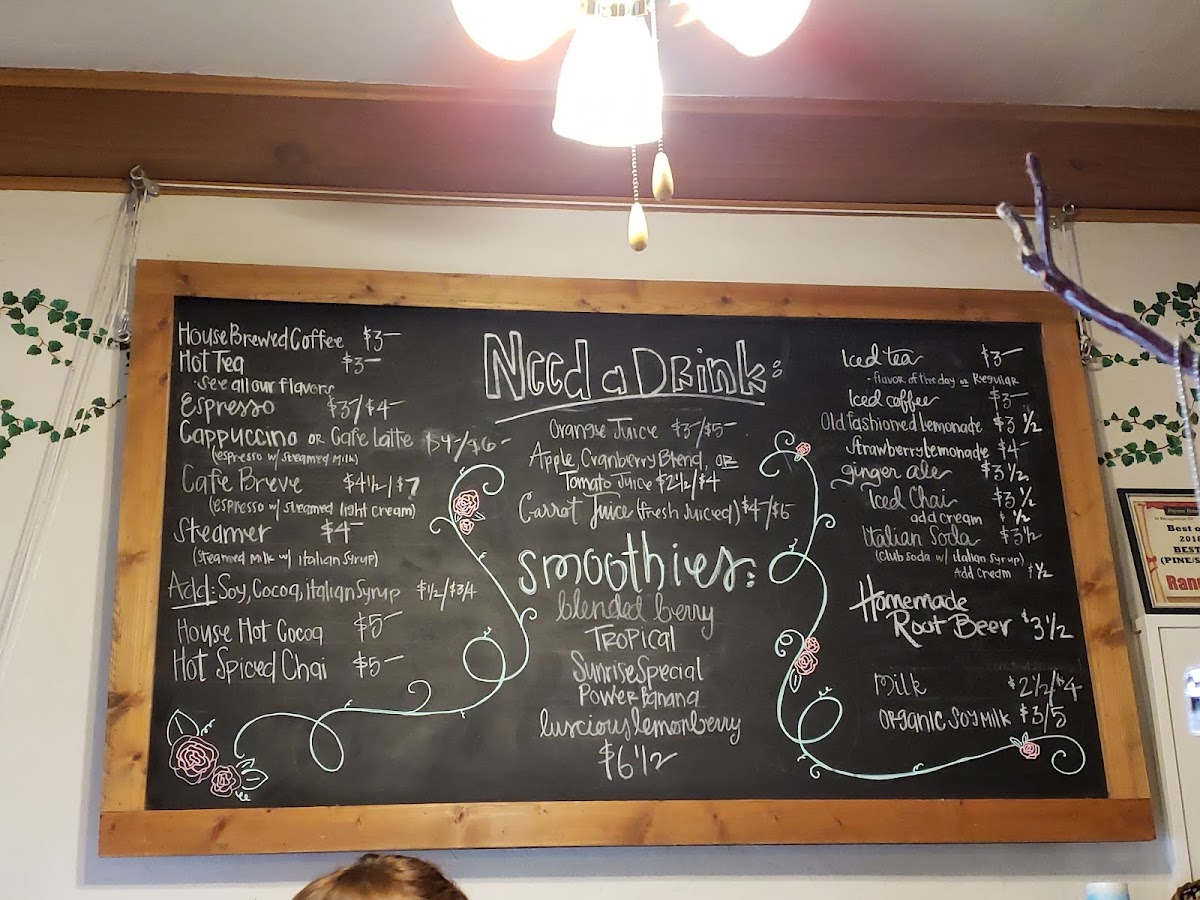 House Brewed Coffee $3—
Hot Tea $3—
·see all our flavors
Espresso $3/$4—
Cappuccino or Cafe latte $4—/$6—
(espresso w/ steamed milk)
Cafe Breve $4 1/2/$7
(espresso w/ steamed light cream)
Steamer $4—
(steamed milk w/ italian syrup)
Add: Soy, Cocoa, Italian Syrup $1/2/$3/4
House Hot Cocoa $5—
Hot Spiced Chai $5—
Need a Drink:
Orange Juice $3/$5—
Apple, Cranberry Blend, or
Tomato Juice $2 1/2/$4
Carrot Juice (fresh juiced) $4/$6
smoothies:
blended berry
Tropical
Sunrise Special
Power Banana
luscious lemonberry
$6 1/2
Iced tea $3—
-flavor of the day or Regular
Iced coffee $3—
Old fashioned lemonade $3 1/2
Strawberry lemonade $4—
ginger ale $3 1/2
Iced Chai $3 1/2
add cream $ 1/2
Italian Soda $3 1/2
(club soda w/ italian syrup)
Add cream $ 1/2
Homemade
Root Beer $3 1/2
Milk $2 1/2/$4
Organic Soy Milk $3/5
Best o
2018
BEST
(PINE/S
Ran